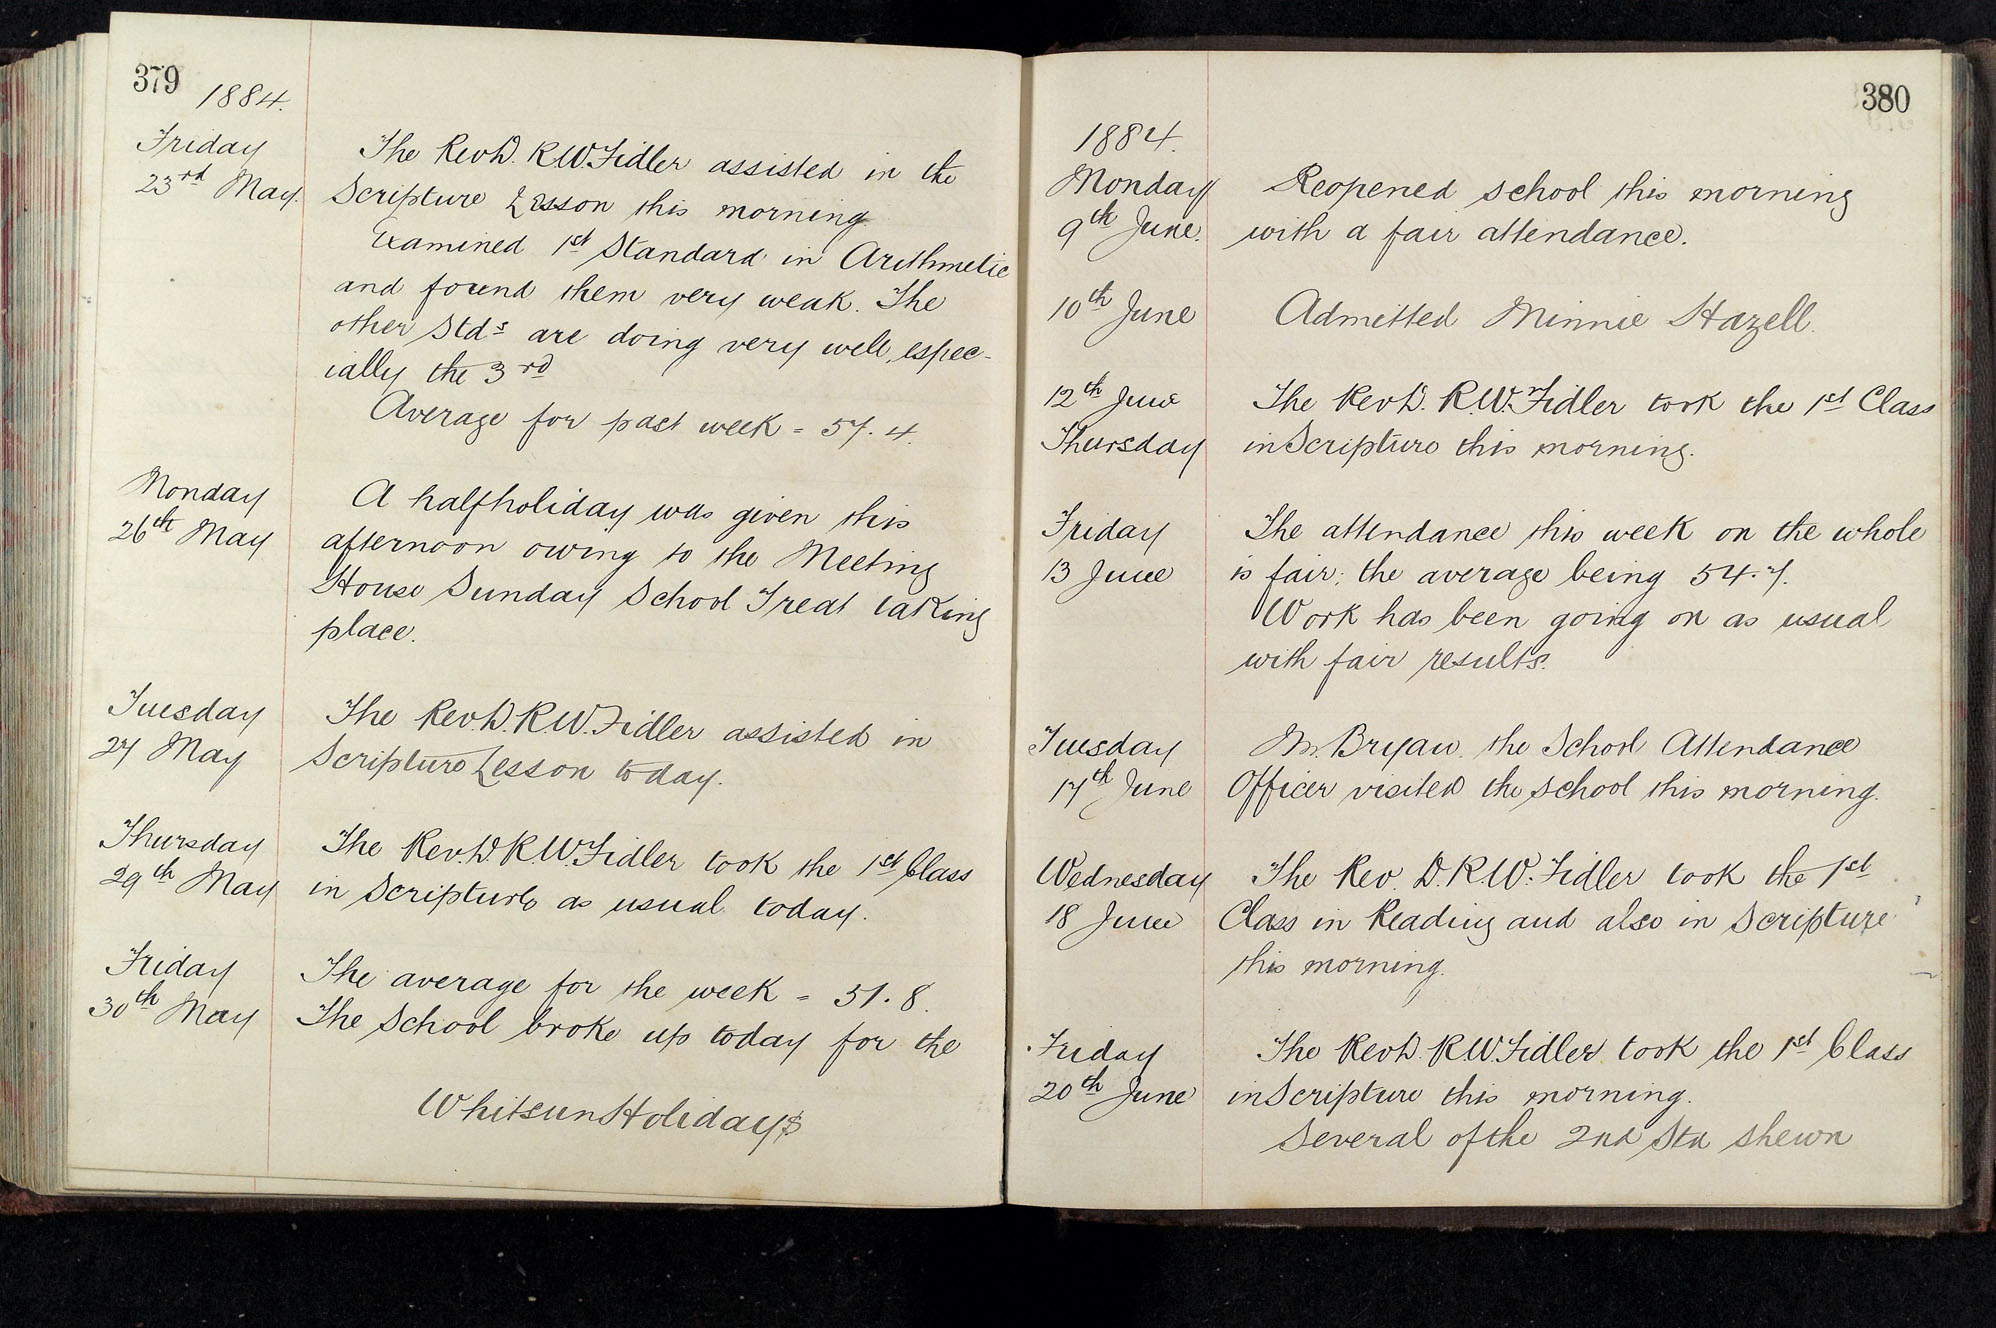 379
1884.
Friday
23rd May.
The Revd. R.W. Fidler assisted in the
Scripture Lesson this morning.
Examined 1st Standard in Arithmetic
and found them very weak. The
other Stds are doing very well, espec-
ially the 3rd
Average for past week = 57.4.
Monday
26th May
A halfholiday was given this
afternoon owing to the Meeting
House Sunday School Treat taking
place.
Tuesday
27 May
The Revd. R.W. Fidler assisted in
Scripture Lesson today.
Thursday
29th May
The Rev.d R.W. Fidler took the 1st Class
in Scripture as usual today.
Friday
30th May
The average for the week = 51.8.
The School broke up today for the
Whitsun Holidays
380
1884.
Monday
9th June.
Reopened school this morning
with a fair attendance.
10th June
Admitted Minnie Hazell.
12th June
Thursday
The Revd. R.W. Fidler took the 1st Class
in Scripture this morning.
Friday
13 June
The attendance this week on the whole
is fair; the average being 54.7.
Work has been going on as usual
with fair results.
Tuesday
17th June
Mr. Bryan, the School Attendance
Officer visited the school this morning.
Wednesday
18 June
The Rev. D. R.W. Fidler took the 1st
Class in Reading and also in Scripture
this morning.
Friday
20th June
The Revd. R.W. Fidler took the 1st Class
in Scripture this morning.
Several of the 2nd Std shewn